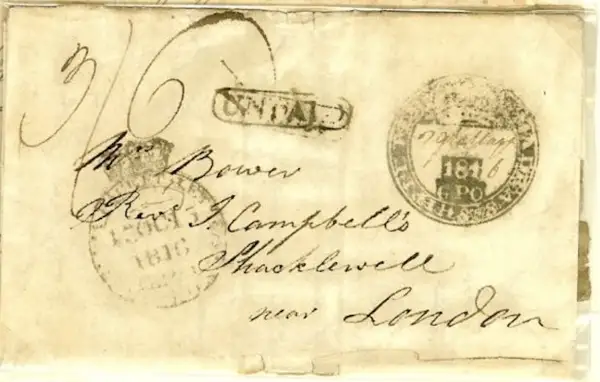 3/6
UNPAID
1816
GPO
Mrs Bower
Revd J. Campbell's
Shacklewell
near London
OCT
1816